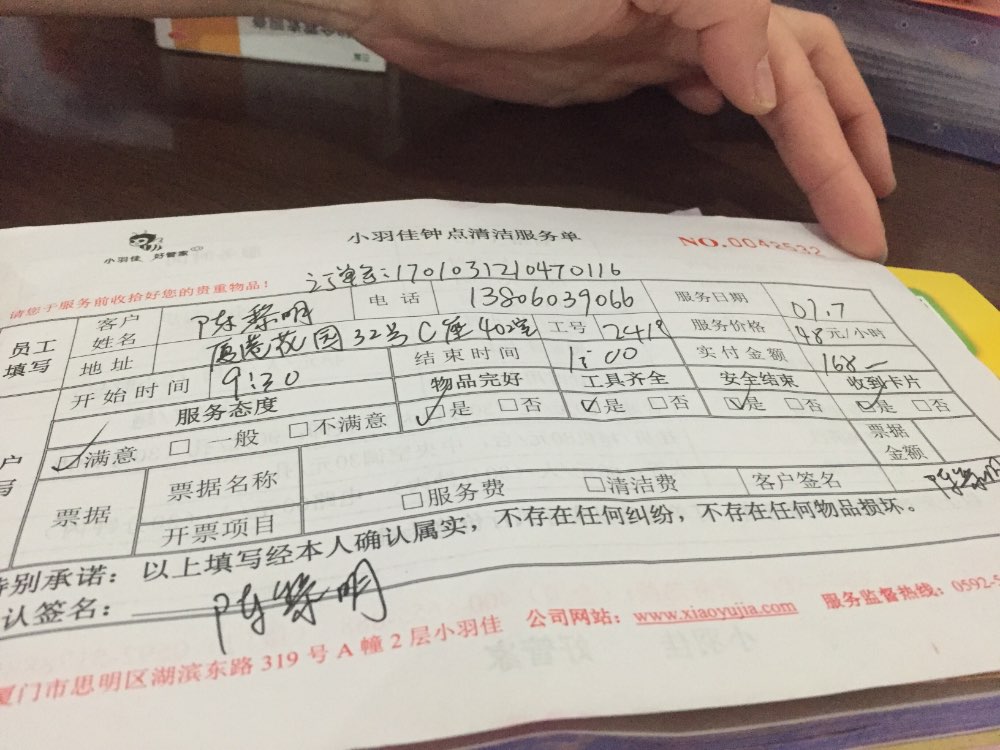 小羽佳 好管家
小羽佳钟点清洁服务单
NO.0042532
请您于服务前收拾好您的贵重物品!
订单号:1701031210470116
员工填写 客户姓名 陈黎明 电话 13806039066 服务日期 01.7
地址 厦港花园32号C座402室 工号 2419 服务价格 48元/小时
开始时间 9:30 结束时间 1:00 实付金额 168-
服务态度 物品完好 工具齐全 安全结束 收到卡片
☑满意 □一般 □不满意 ☑是 □否 ☑是 □否 ☑是 □否 ☑是 □否
票据 票据名称 票据金额
开票项目 □服务费 □清洁费 客户签名 陈黎明
特别承诺:以上填写经本人确认属实,不存在任何纠纷,不存在任何物品损坏。
认签名: 陈黎明
厦门市思明区湖滨东路319号A幢2层小羽佳 公司网站:www.xiaoyujia.com 服务监督热线:0592-5